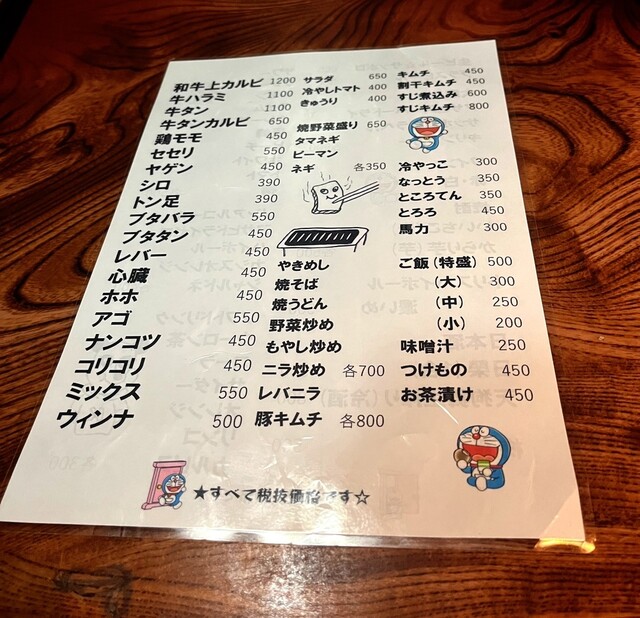 和牛上カルビ 1200
牛ハラミ 1100
牛タン 1100
牛タンカルビ 650
鶏モモ 450
セセリ 550
ヤゲン 450
シロ 390
トン足 390
ブタバラ 550
ブタタン 450
レバー 450
心臓 450
ホホ 450
アゴ 550
ナンコツ 450
コリコリ 450
ミックス 550
ウィンナ 500
サラダ 650
冷やしトマト 400
きゅうり 400
焼野菜盛り 650
タマネギ
ピーマン
ネギ 各350
やきめし
焼そば
焼うどん
野菜炒め
もやし炒め
ニラ炒め 各700
レバニラ
豚キムチ 各800
キムチ 450
割干キムチ 450
すじ煮込み 600
すじキムチ 800
冷やっこ 300
なっとう 350
ところてん 350
とろろ 450
馬力 300
ご飯(特盛) 500
(大) 300
(中) 250
(小) 200
味噌汁 250
つけもの 450
お茶漬け 450
★すべて税抜価格です☆